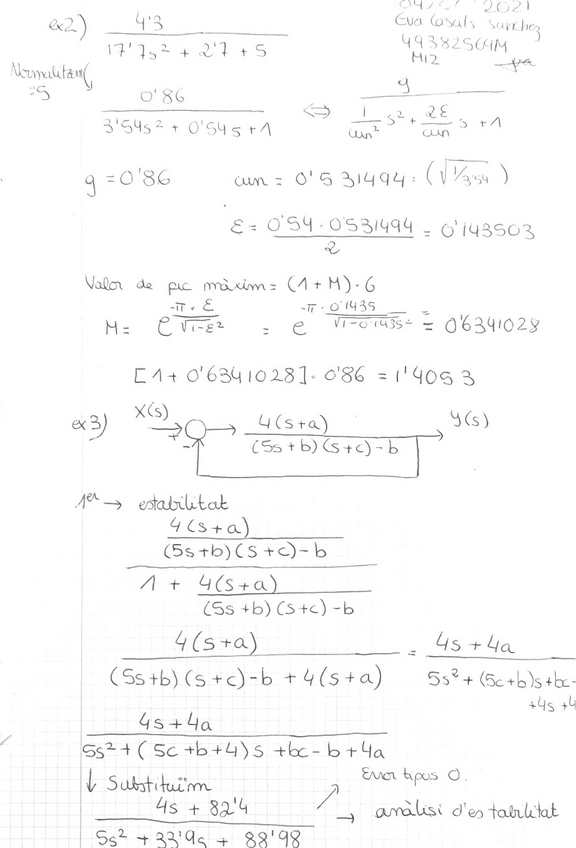 04/07 2021
Eva Casals Sanchez
49382564M
M12
ex2) 4'3 / 17'7s² + 2'7 + 5
Normalitzem
:5
0'86 / 3'54s² + 0'54s + 1 ⇔ g / 1/ωn² s² + 2ε/ωn s + 1
g = 0'86 ωn = 0'531494 : (√1/3'54)
ε = 0'54 · 0'531494 / 2 = 0'143503
Valor de pic màxim = (1 + M) · G
M = e^(-π · ε / √1-ε²) = e^(-π · 0'1435 / √1-0'1435²) = 0'6341028
[1 + 0'6341028] · 0'86 = 1'4053
ex3) X(s) + - 4(s+a) / (5s+b)(s+c)-b y(s)
1er → estabilitat
4(s+a) / (5s+b)(s+c)-b
1 + 4(s+a) / (5s+b)(s+c)-b
4(s+a) / (5s+b)(s+c)-b + 4(s+a) = 4s + 4a / 5s² + (5c+b)s + bc-
+4s +4
4s + 4a / 5s² + (5c + b + 4)s + bc - b + 4a
↓ Substituïm
Error tipus 0.
4s + 82'4 / 5s² + 33'9s + 88'98 → anàlisi d'estabilitat